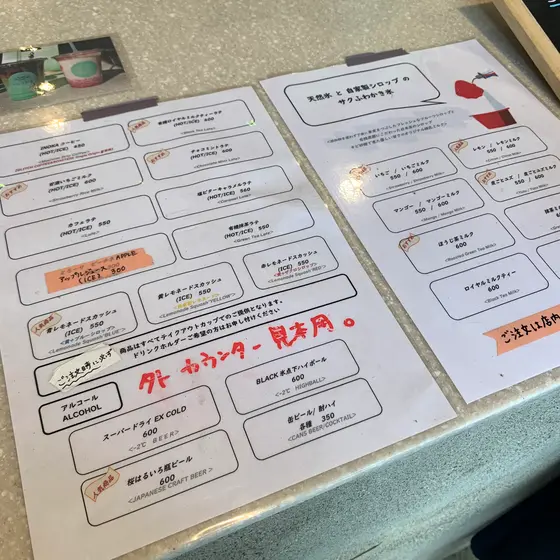 有機ロイヤルミルクティーラテ
(HOT/ICE) 600
<Black Tea Latte>
INOKA コーヒー
(HOT/ICE) 450
チョスミントラテ
(HOT/ICE) 550
<Chocolate Mint Latte>
(HOT/ICE) 600
<Strawberry Rice Milk>
塩ビターキャラメルラテ
(HOT/ICE) 560
<Caramel Latte>
カフェラテ
(HOT/ICE) 550
<Latte>
有機抹茶ラテ
(HOT/ICE) 550
<Green Tea Latte>
APPLE
アップルジュース
(ICE) 300
赤レモネードスカッシュ
(ICE) 550
<Lemonade Squash RED>
黄レモネードスカッシュ
(ICE) 550
<Lemonade Squash YELLOW>
人気商品
青レモネードスカッシュ
(ICE) 550
<Lemonade Squash BLUE>
ご注文時に必ず
商品はすべてテイクアウトカップでのご提供となります。
ドリンクホルダーご希望の方はお申し付けください
外カウンター 見本用。
アルコール
ALCOHOL
BLACK 氷点下ハイボール
600
<-2℃ HIGHBALL>
スーパードライ EX COLD
600
<-2℃ BEER>
缶ビール/ 酎ハイ
各種 350
<CANS BEER/COCKTAIL>
人気商品
桜はるいろ瓶ビール
600
<JAPANESE CRAFT BEER>
天然氷 と 自家製シロップ の
サクふわかき氷
いちご / いちごミルク
550 / 600
<Strawberry / Strawberry Milk>
レモン / レモンミルク
550 / 600
マンゴー / マンゴーミルク
550 / 600
<Mango / Mango Milk>
550 / 600
ほうじ茶ミルク
600
<Roasted Green Tea Milk>
ロイヤルミルクティー
600
<Black Tea Milk>
ご注文は店内